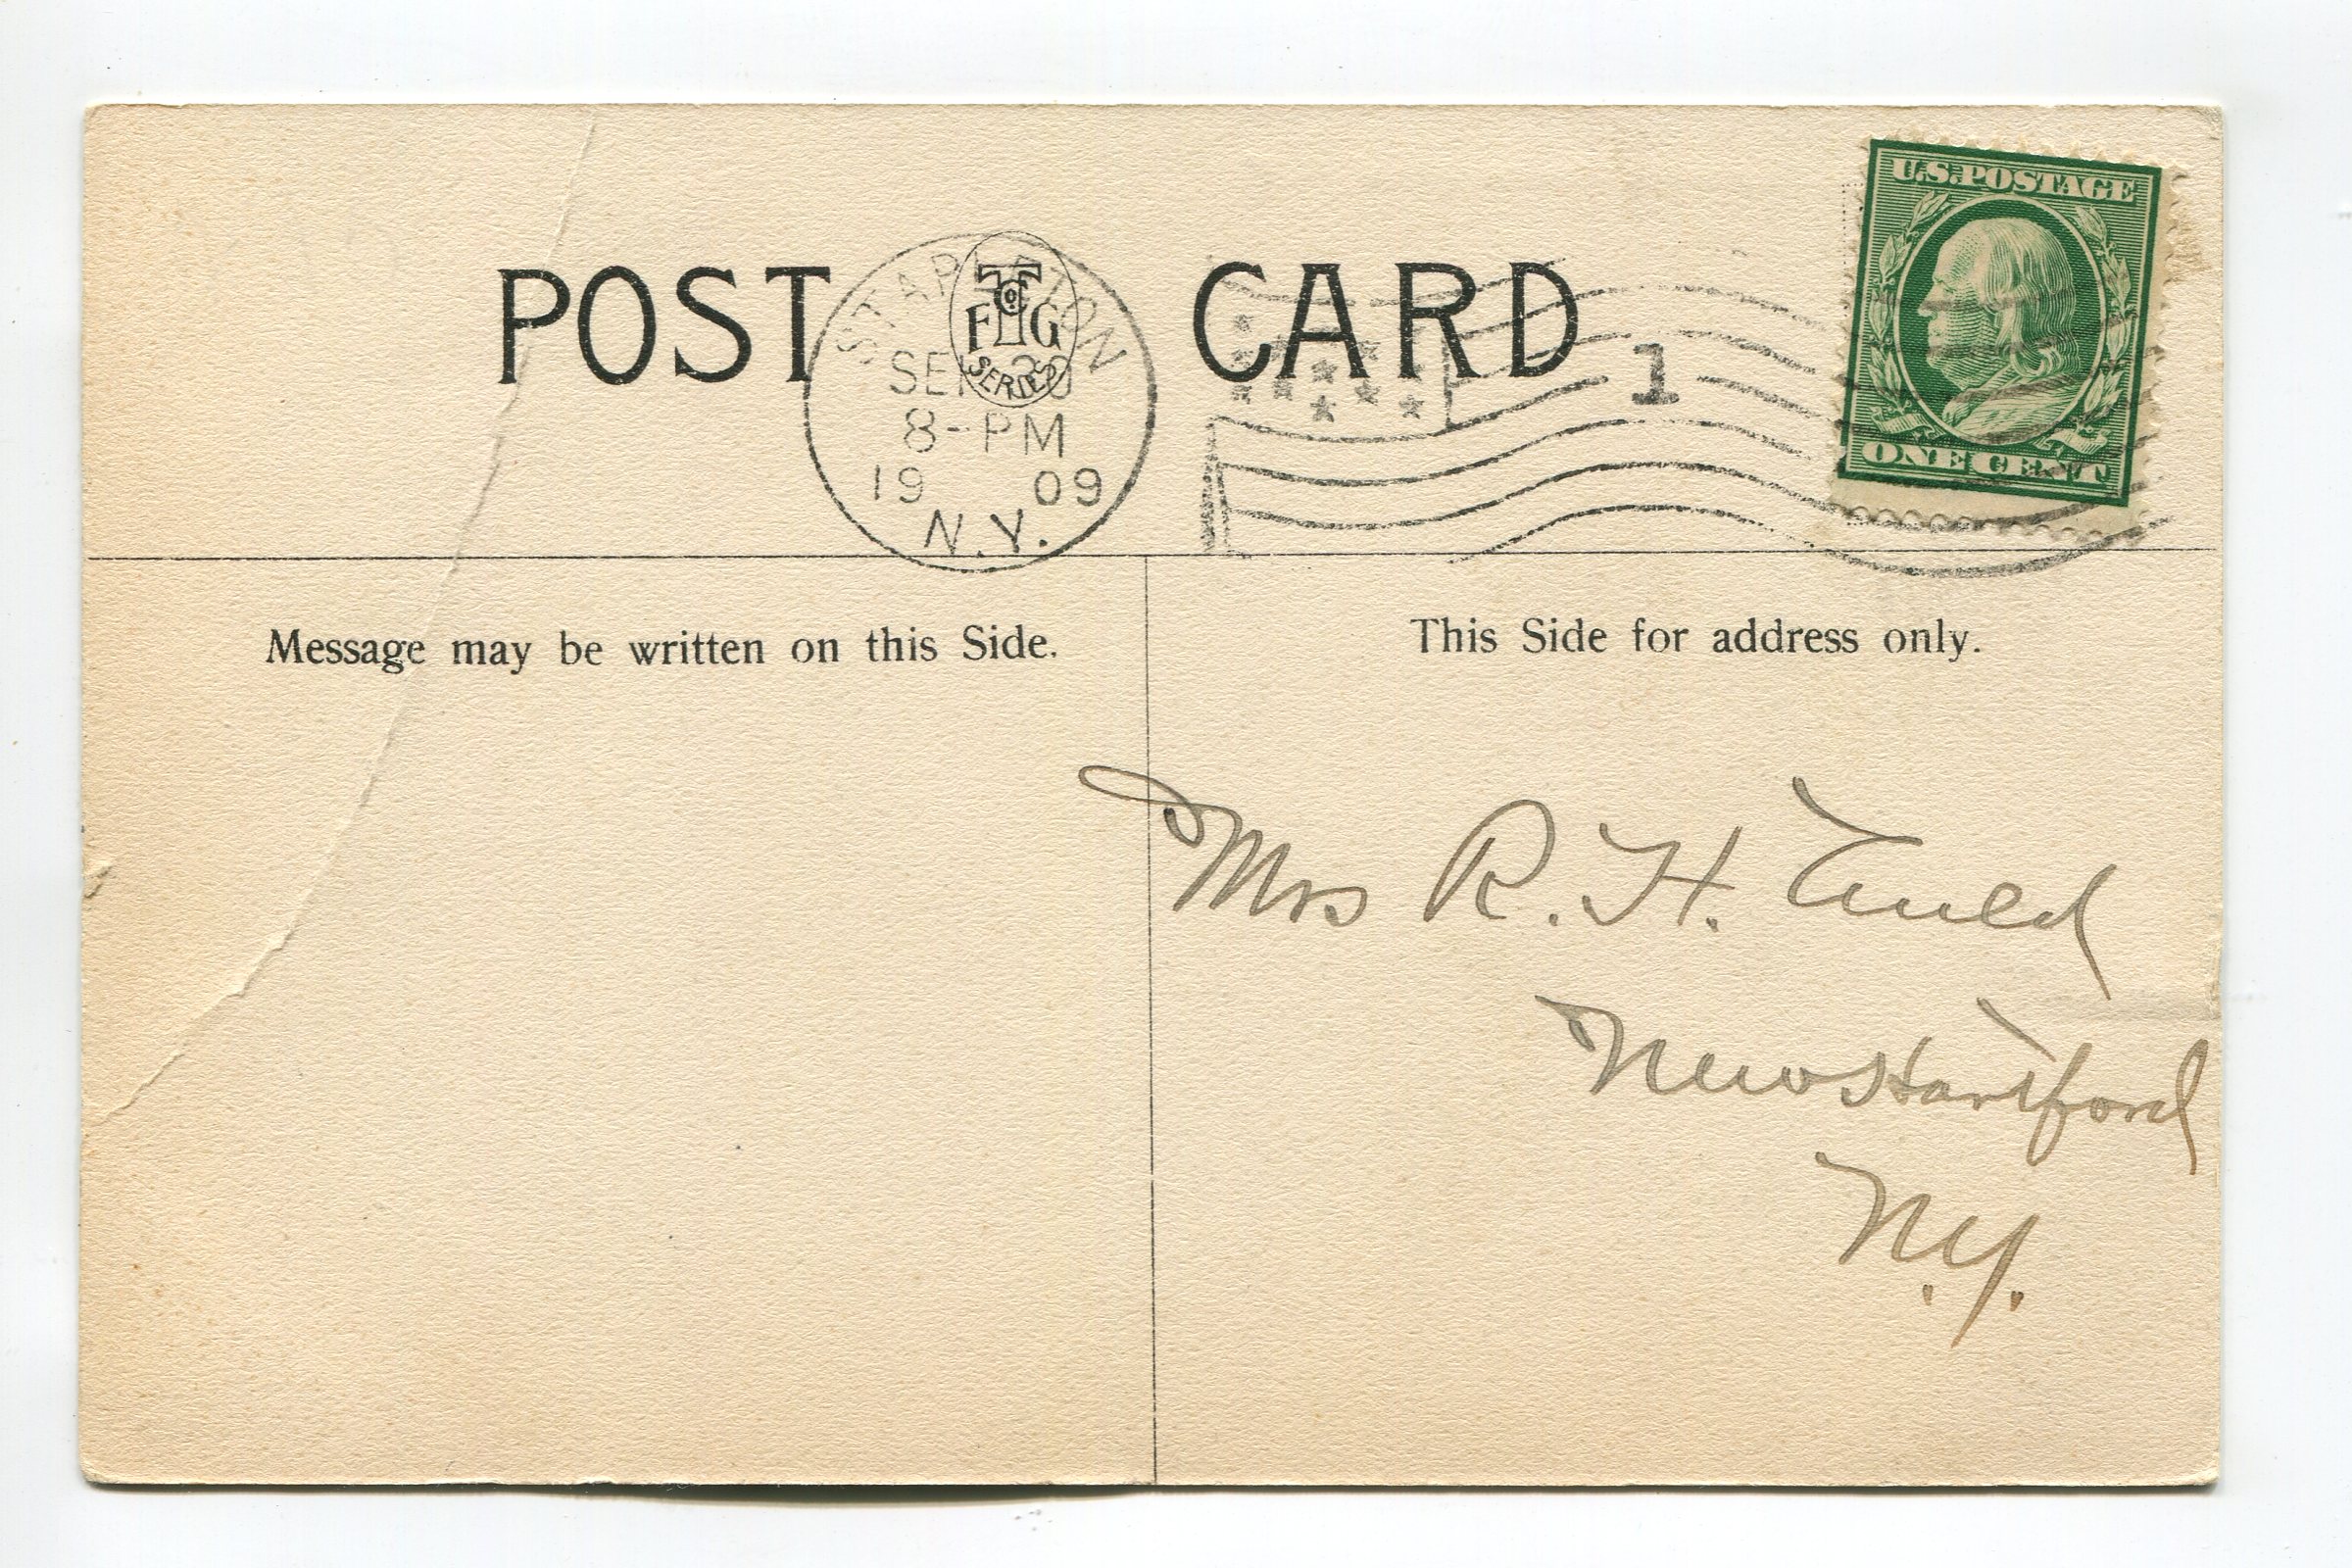 POST CARD
STAPLETON
8-PM
19 09
N.Y.
T
Co
F H G
SERIES
1
U.S. POSTAGE
ONE CENT
Message may be written on this Side.
This Side for address only.
Mrs R. H. Auld
New Hartford
N.Y.